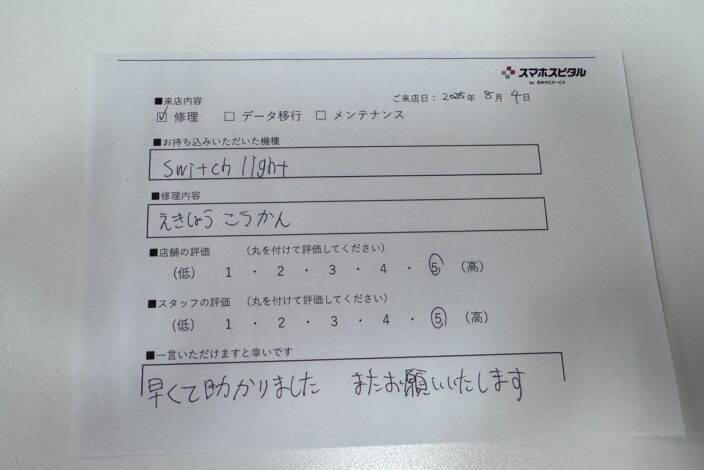 スマホスピタル
by 日本PCサービス
ご来店日： 2025年 8月 4日
■来店内容
☑ 修理 □ データ移行 □ メンテナンス
■お持ち込みいただいた機種
switch light
■修理内容
えきしょう こうかん
■店舗の評価 （丸を付けて評価してください）
（低） 1 ・ 2 ・ 3 ・ 4 ・ 5 （高）
■スタッフの評価 （丸を付けて評価してください）
（低） 1 ・ 2 ・ 3 ・ 4 ・ 5 （高）
■一言いただけますと幸いです
早くて助かりました またお願いいたします